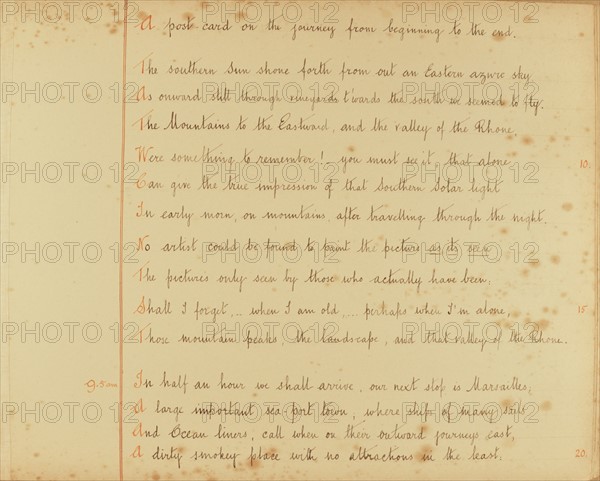 A post card on the journey from beginning to the end.
The Southern Sun shone forth from out an Eastern azure sky
As onward still through vineyards t'wards the south we seemed to fly.
The Mountains to the Eastward, and the valley of the Rhone
Were something to remember! – you must see it, that alone 10.
Can give the true impression of that Southern Solar light
In early morn, on mountains, after travelling through the night.
No artist could be found to paint the picture as its seen
The pictures only seen by those who actually have been.
Shall I forget... when I am old,... perhaps when I'm alone, 15
Those mountain peaks, the landscape, and that valley of the Rhone.
9.5 am In half an hour we shall arrive, our next stop is Marsailles,
A large important sea port town, where ships of many sails
And Ocean liners, call when on their outward journeys east,
A dirty smokey place with no attractions in the least. 20.
PHOTO 12